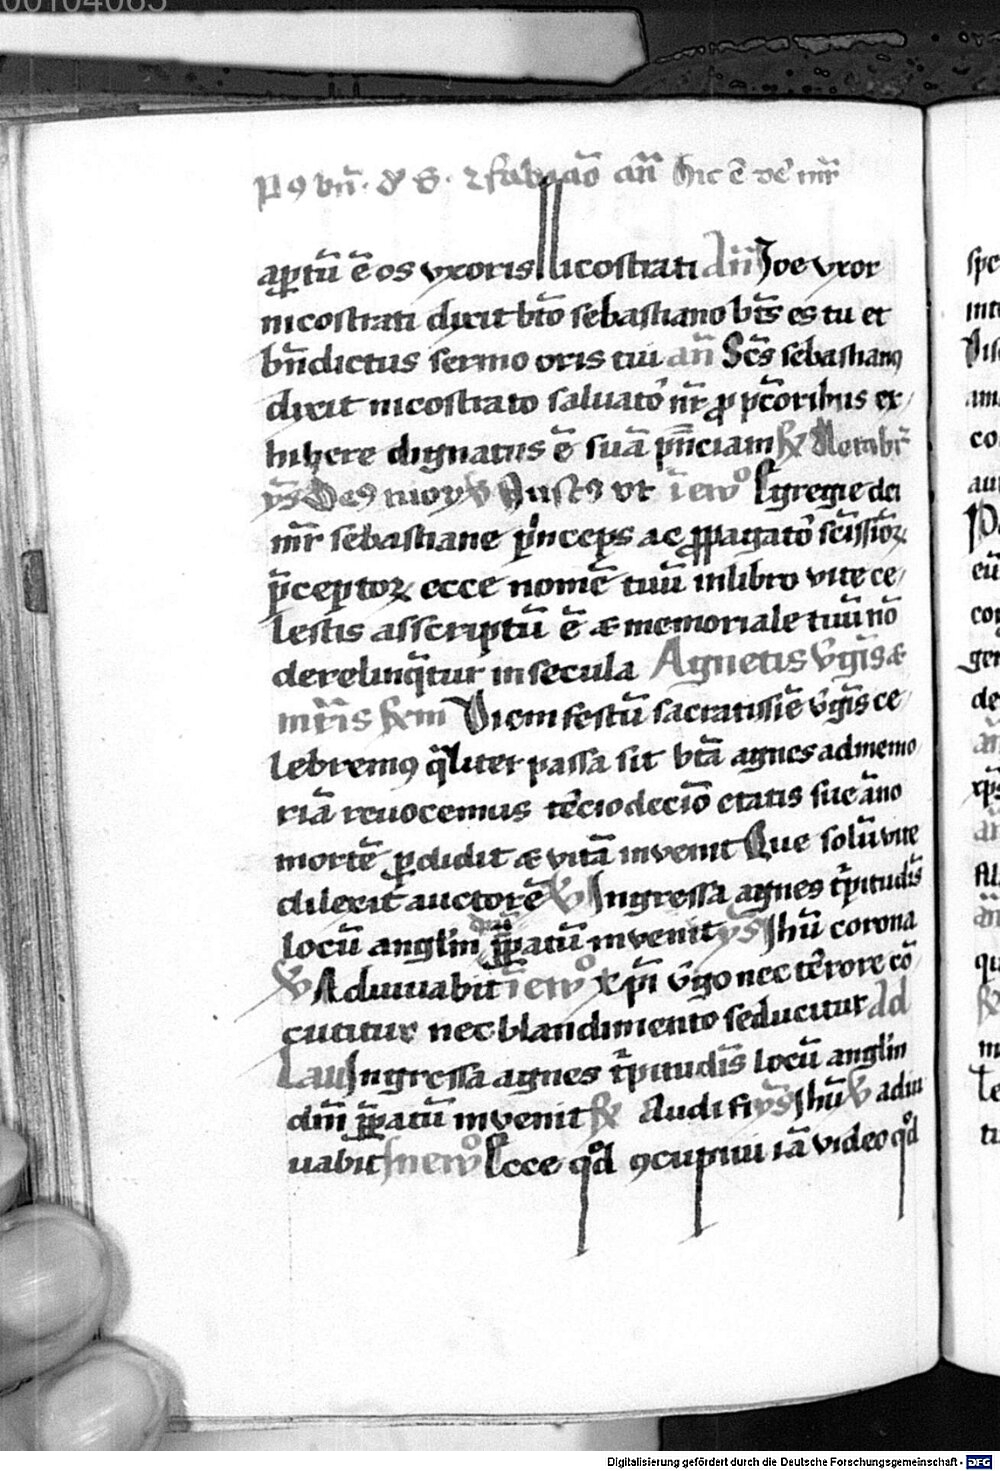 00104065
P9 bn̄. d' S. ⁊ fabiāo an̄ hic ē ve' mr̄
ap̱tū ē os vxoris Nicostrati an̄ Zoe vxor
nicostrati dixit btō sebastiano bt̄s es tu et
bn̄dictus sermo oris tui an̄ Scs̄ sebastian9
dixit nicostrato saluato' nr̄ ꝓ pc̄toribus ex
hibere dignatus ē suā pn̄ciam
vt in ew° Egregie dei
mr̄ sebastiane pinceps ac ꝓpagato' scīssioꝝ
p̄ceptoꝝ ecce nomē tuū in libro vite ce
lestis asscriptū ē & memoriale tuū nō
derelinq̄tur in secula Agnetis v̄gīs &
mr̄is Diem festū sacratissīe v̄gīs ce
lebrem9 q̄liter passa sit btā agnes ad memo
riā reuocemus te'cio decīo etatis sue āno
mortē p̱didit & vitā invenit Que solū vite
dilexit auctorē ℣ Ingressa agnes t'pitudīs
locū anglm̄ dn̄i pp̄atū invenit ys Ihū corona
℣ Adiuuabit in ew° Xp̄i v̄go nec te'rore cō
cutitur nec blandimento seducitur Ad
Lau Ingressa agnes t'pitudīs locū anglm̄
dn̄i pp̄atū invenit Audi fi ys Ihū ℣ adiu
uabit In ew° Ecce qd° 9cupiui iā video qd°
Digitalisierung gefördert durch die Deutsche Forschungsgemeinschaft - DFG